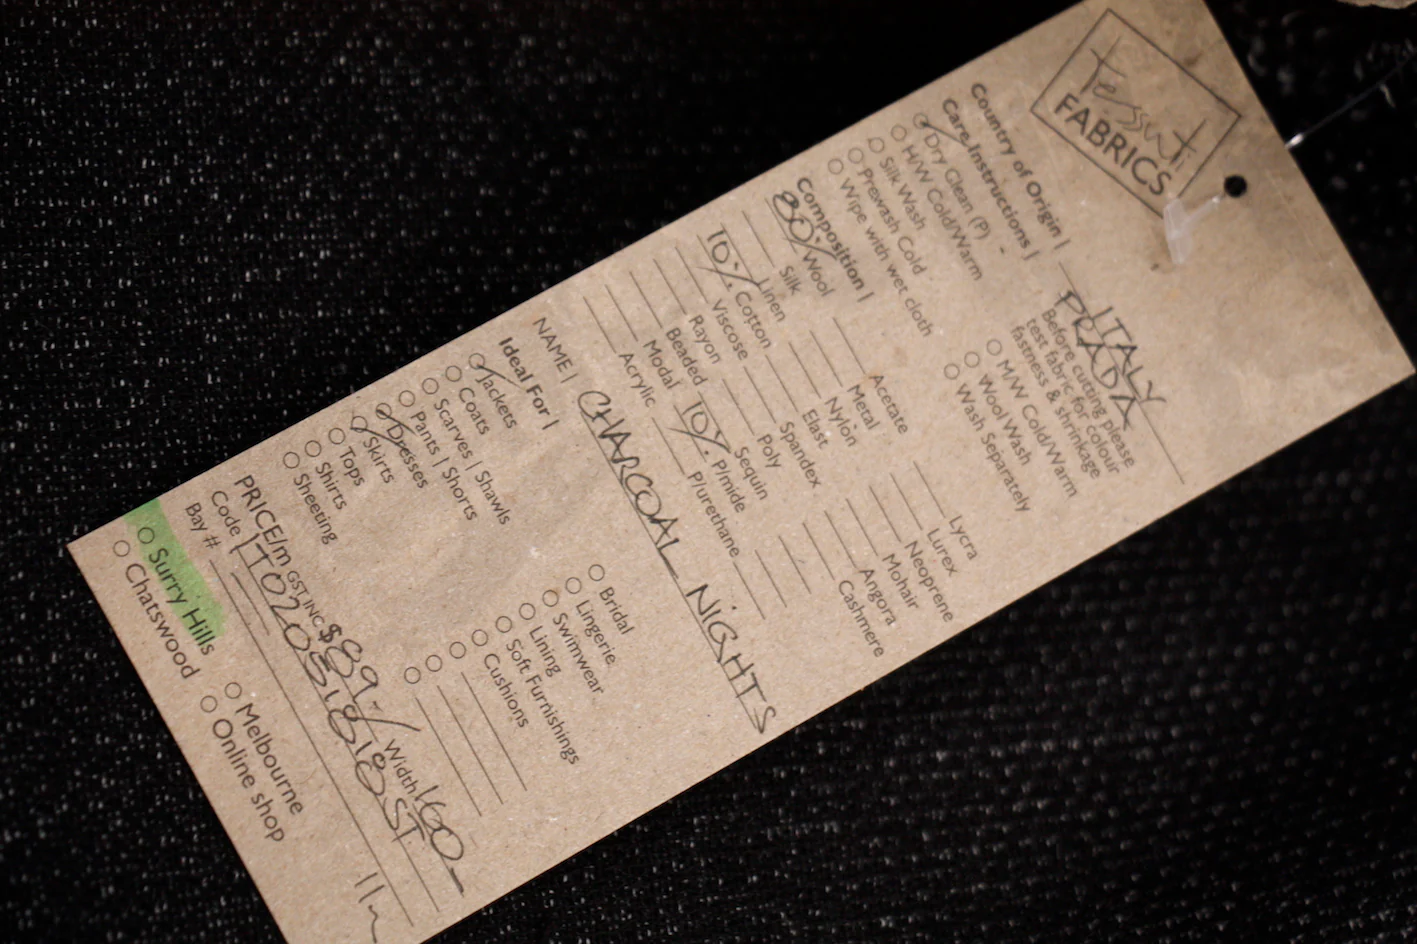 Tessuti
FABRICS
Country of Origin | ITALY
PRADA
Care Instructions |
Before cutting please
test fabric for colour
fastness & shrinkage
Dry Clean (P)
H/W Cold/Warm
Silk Wash
Prewash Cold
Wipe with wet cloth
M/W Cold/Warm
Wool Wash
Wash Separately
Composition |
80% Wool
Silk
Linen
10% Cotton
Viscose
Rayon
Beaded
Modal
Acrylic
Acetate
Metal
Nylon
Elast
Spandex
Poly
Sequin
10% P/mide
P/urethane
Lycra
Lurex
Neoprene
Mohair
Angora
Cashmere
NAME | CHARCOAL NIGHTS
Ideal For |
Jackets
Coats
Scarves | Shawls
Pants | Shorts
Dresses
Skirts
Tops
Shirts
Sheeting
Bridal
Lingerie
Swimwear
Lining
Soft Furnishings
Cushions
PRICE/m GST INC $89- Width 160
Code |
Bay #
Surry Hills
Chatswood
Melbourne
Online shop